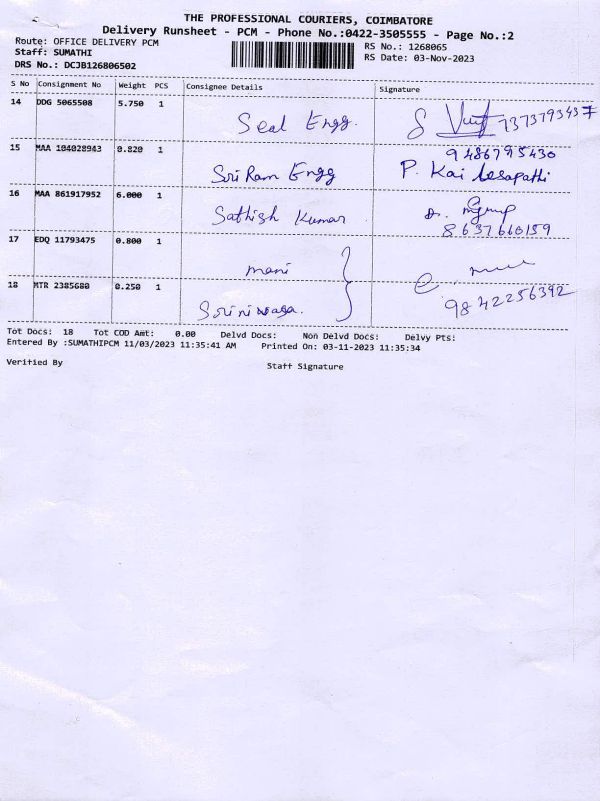 THE PROFESSIONAL COURIERS, COIMBATORE
Delivery Runsheet - PCM - Phone No.:0422-3505555 - Page No.:2
Route: OFFICE DELIVERY PCM
Staff: SUMATHI
RS No.: 1268065
DRS No.: DCJB126806502
RS Date: 03-Nov-2023
S No Consignment No Weight PCS Consignee Details Signature
14 DDG 5065508 5.750 1 Seal Engg. 7373793437
15 MAA 104028943 0.820 1 Sri Ram Engg 9486795430
P. Kai
16 MAA 861917952 6.000 1 Sathish Kumar
8637660159
17 EDQ 11793475 0.800 1 mani
18 MTR 2385680 0.250 1 9842256392
Tot Docs: 18 Tot COD Amt: 0.00 Delvd Docs: Non Delvd Docs: Delvy Pts:
Entered By :SUMATHIPCM 11/03/2023 11:35:41 AM Printed On: 03-11-2023 11:35:34
Verified By Staff Signature